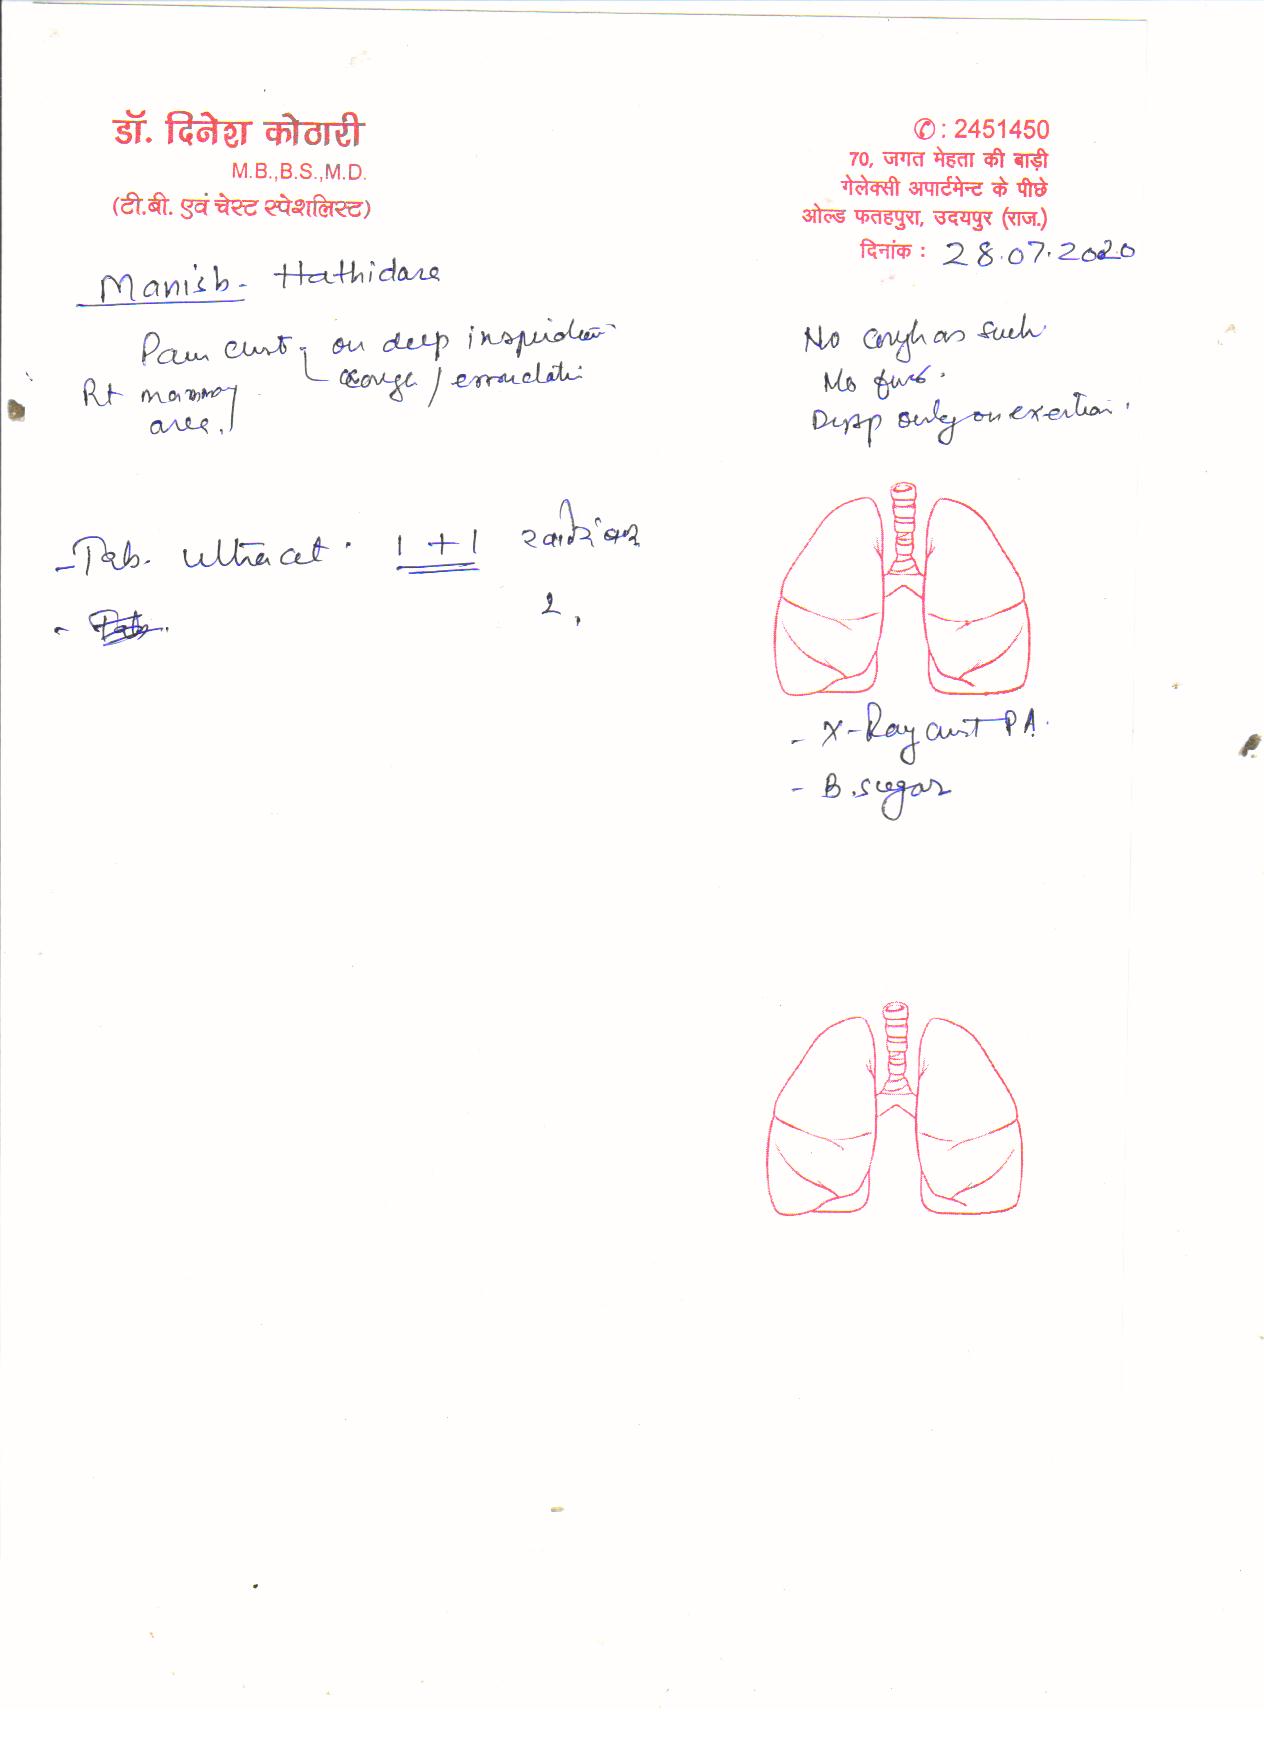 डॉ. दिनेश कोठारी
M.B.,B.S.,M.D.
(टी.बी. एवं चेस्ट स्पेशलिस्ट)
✆ : 2451450
70, जगत मेहता की बाड़ी
गेलेक्सी अपार्टमेन्ट के पीछे
ओल्ड फतहपुरा, उदयपुर (राज.)
दिनांक : 28.07.2020
Manish - Hathidara
Pain chest - on deep inspiration
Rt mammary
area.
No cough as such.
No fever.
Dysp only on exertion.
- Tab. ultracet. 1 + 1
2,
- X-Ray chest PA.
- B. sugar